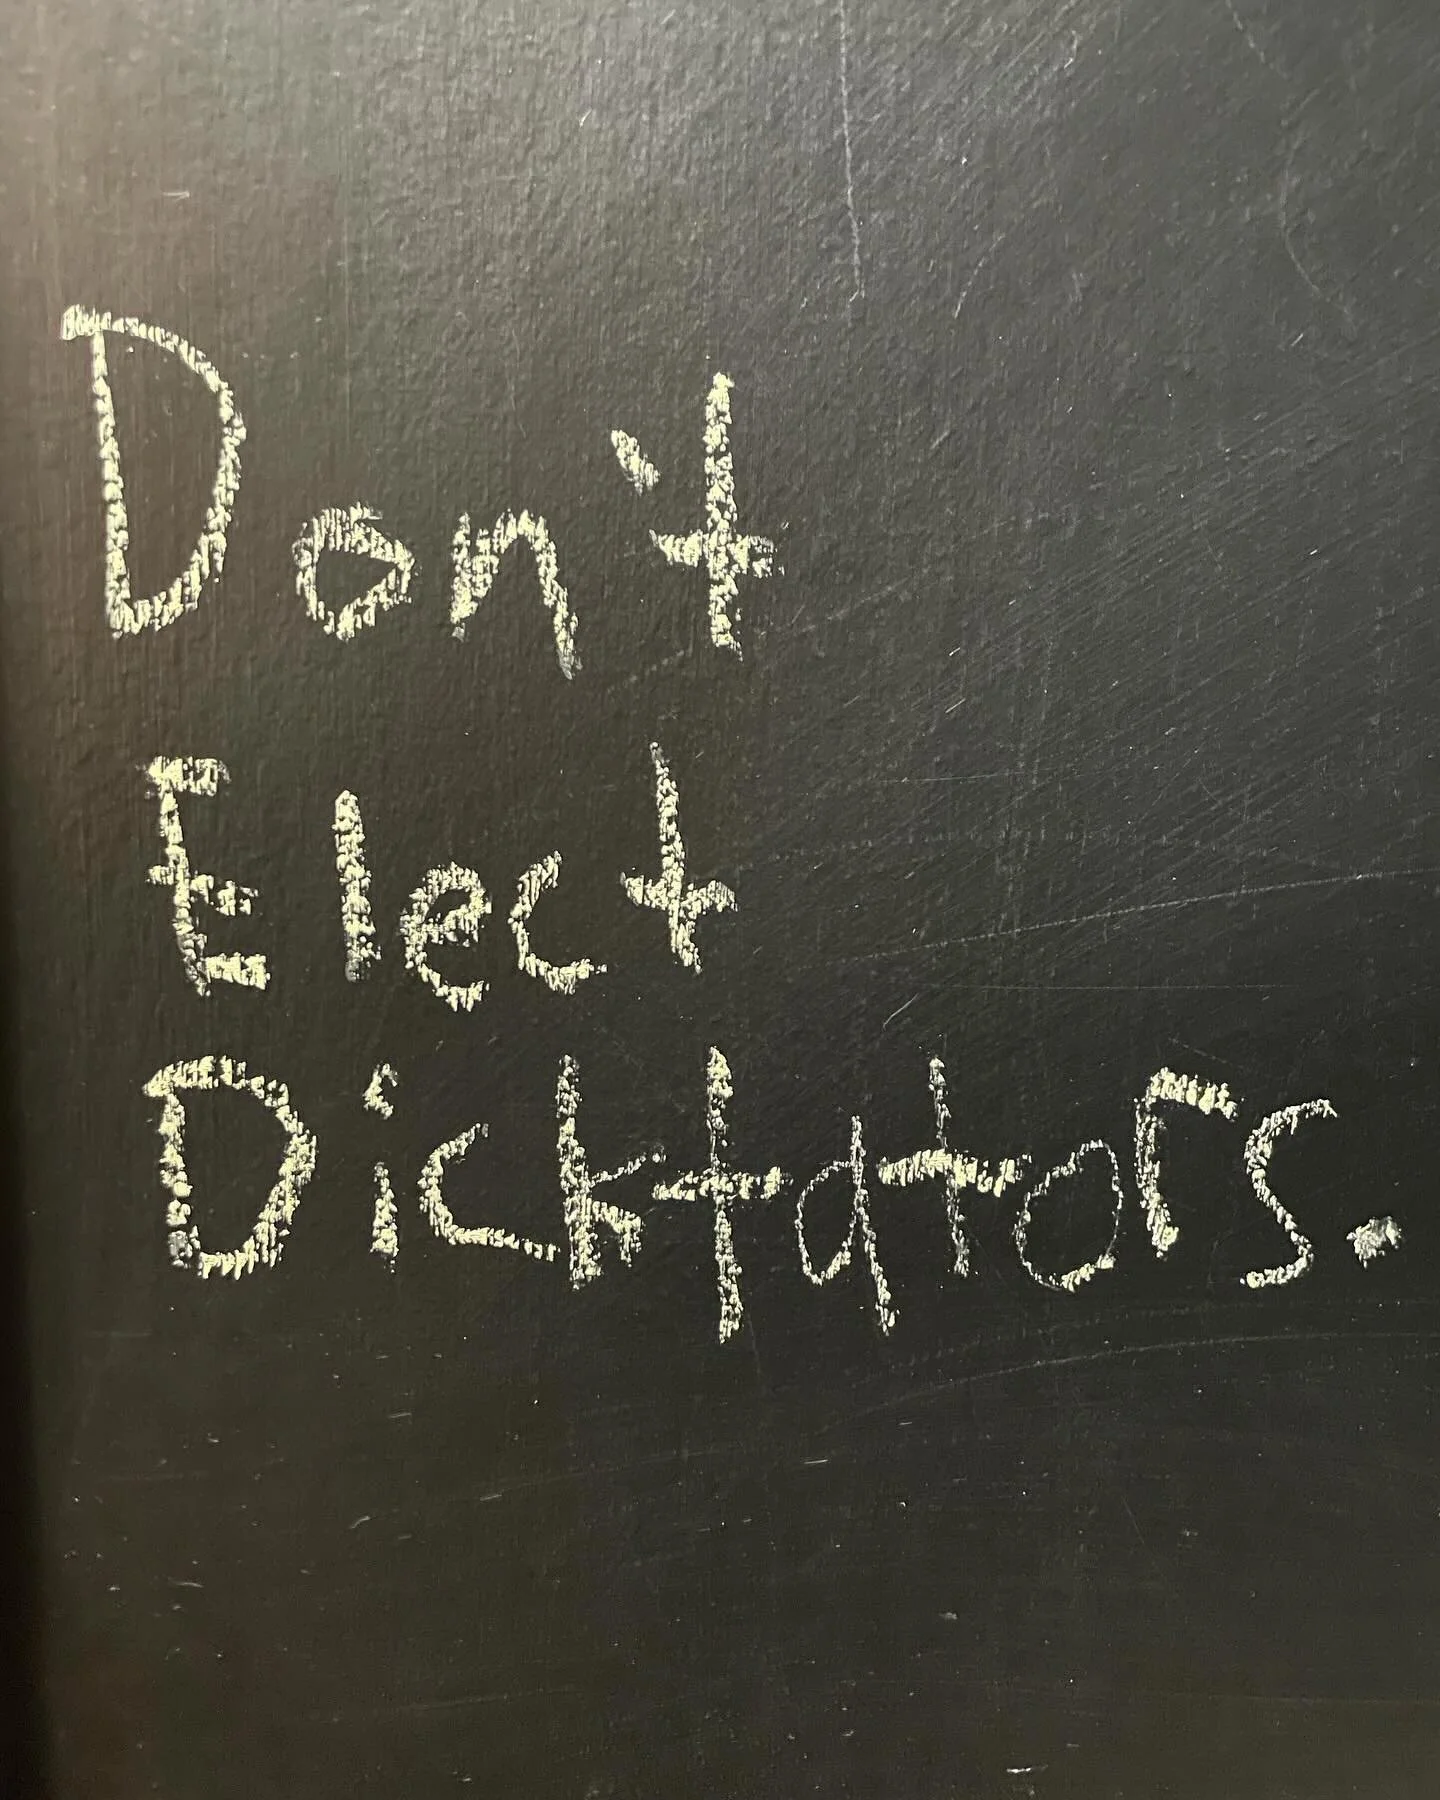 Don't
Elect
Dicktators.